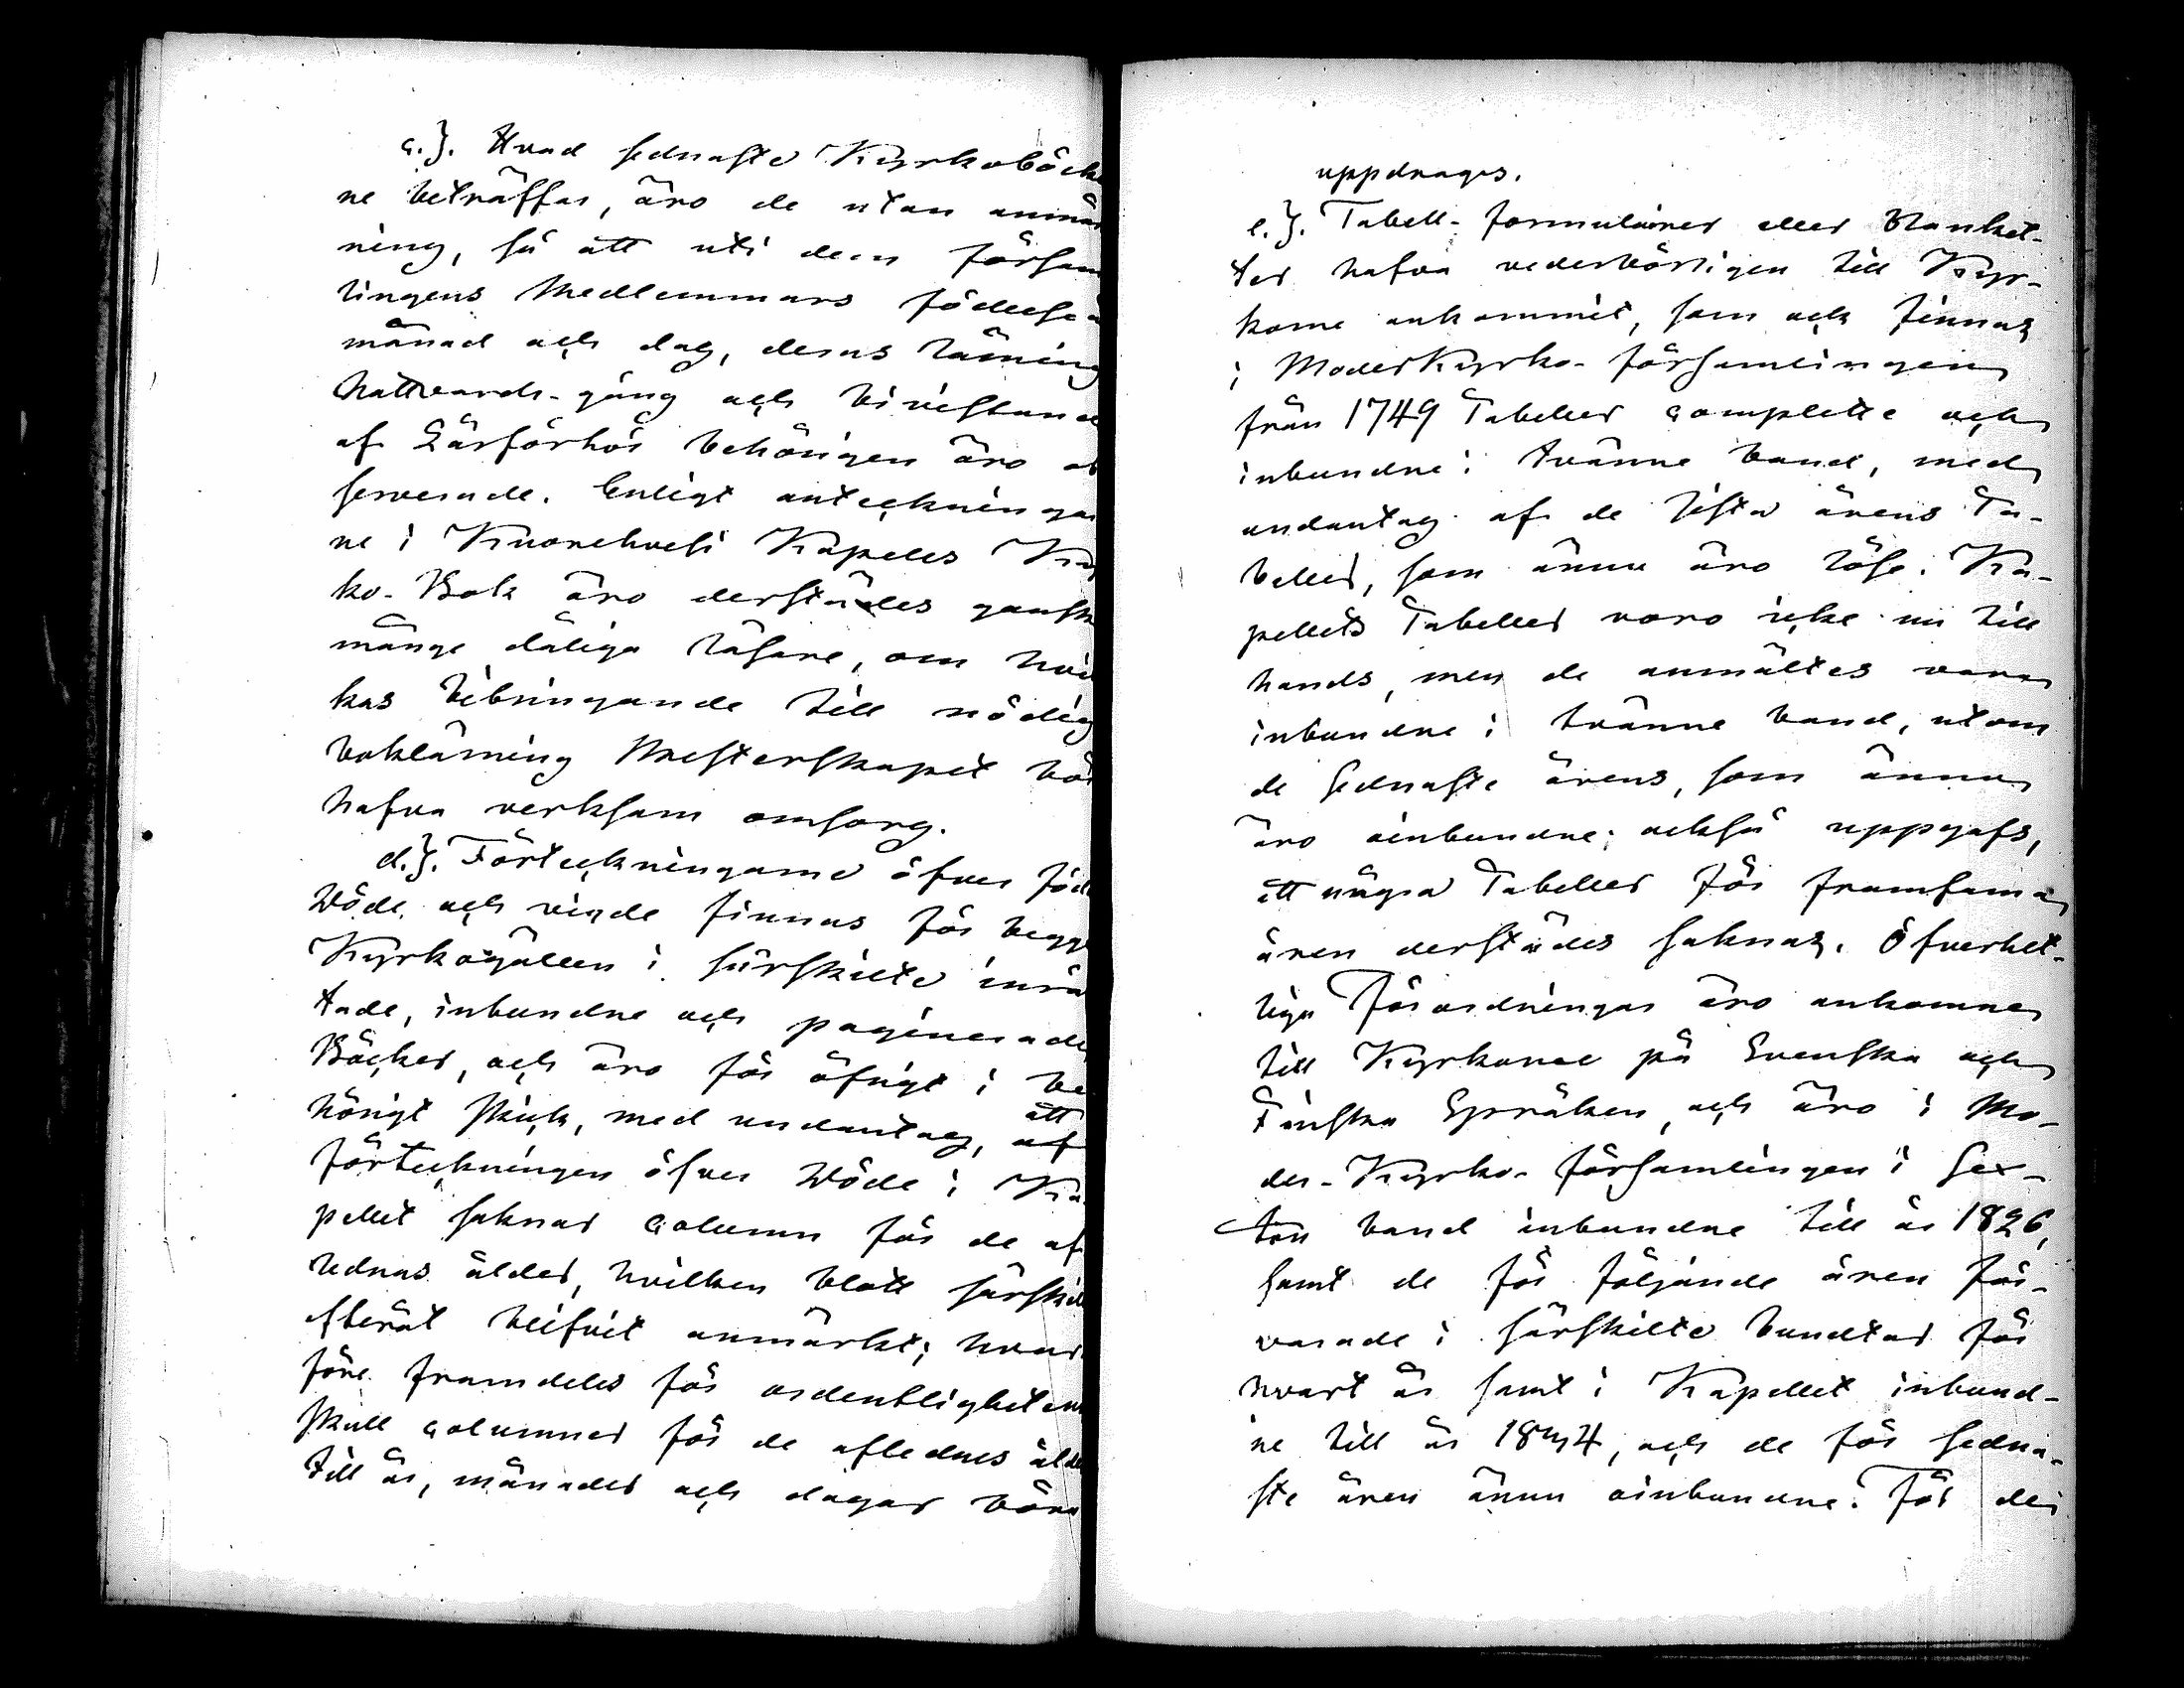 c.). Hvad sednaste Kyrkoböcker
ne beträffar, äro de utan anmär
ning, så att uti dem försam
lingens Medlemmars födelse å
månad och dag, deras läsning
Nattvards-gång och bivistand
af Läsförhör behörigen äro ob
serverade. Enligt anteckningar
ne i Kuorehvesi Kapells Kyr
ko-Bok äro derstädes ganska
månge dåliga läsare, om hvil
kas bibringande till nödig
boklärning Presterskapet bör
hafva verksam omsorg.
d.). Förteckningarne öfver föd
döde och vigde finnas för begge
Kyrkogällen i särskilte inrät
tade, inbundne och paginerade
Böcker, och äro för öfrigt i be
hörigt skick, med undantag, att
förteckningen öfver döde i Ka
pellet saknar Column för de af
lednas ålder, hvilken blott särskilt
efteråt blifvit anmärkt; hvar
före framdeles för ordentligheten
skull columner för de aflednes ålder
till år, månader och dagar böra
uppdrages.
e.). Tabell-formulairer eller Blanket-
ter hafva vederbörligen till Kyr-
korne ankommit, som ock finnas
i Moderkyrko-församlingen
från 1749 Tabeller complette och
inbundne i tvänne band, med
undantag af de sista årens Ta-
beller, som ännu äro löse. Ka-
pellets Tabeller voro icke nu till
hands, men de anmältes vara
inbundne i tvänne band, utom
de sednaste årens, som ännu
äro oinbundne; också uppgafs,
att några Tabeller för framfarna
åren derstädes saknas. Öfverhet-
liga Förordningar äro ankomne
till Kyrkorne på Svenska och
Finska Språken, och äro i Mo-
der-Kyrko-församlingen i Sex-
ton band inbundne till år 1826,
samt de för följande åren för-
varade i särskilte bundtar för
hvart år samt i Kapellet inbund-
ne till år 1824, och de för sedna-
ste åren ännu oinbundne. För dei